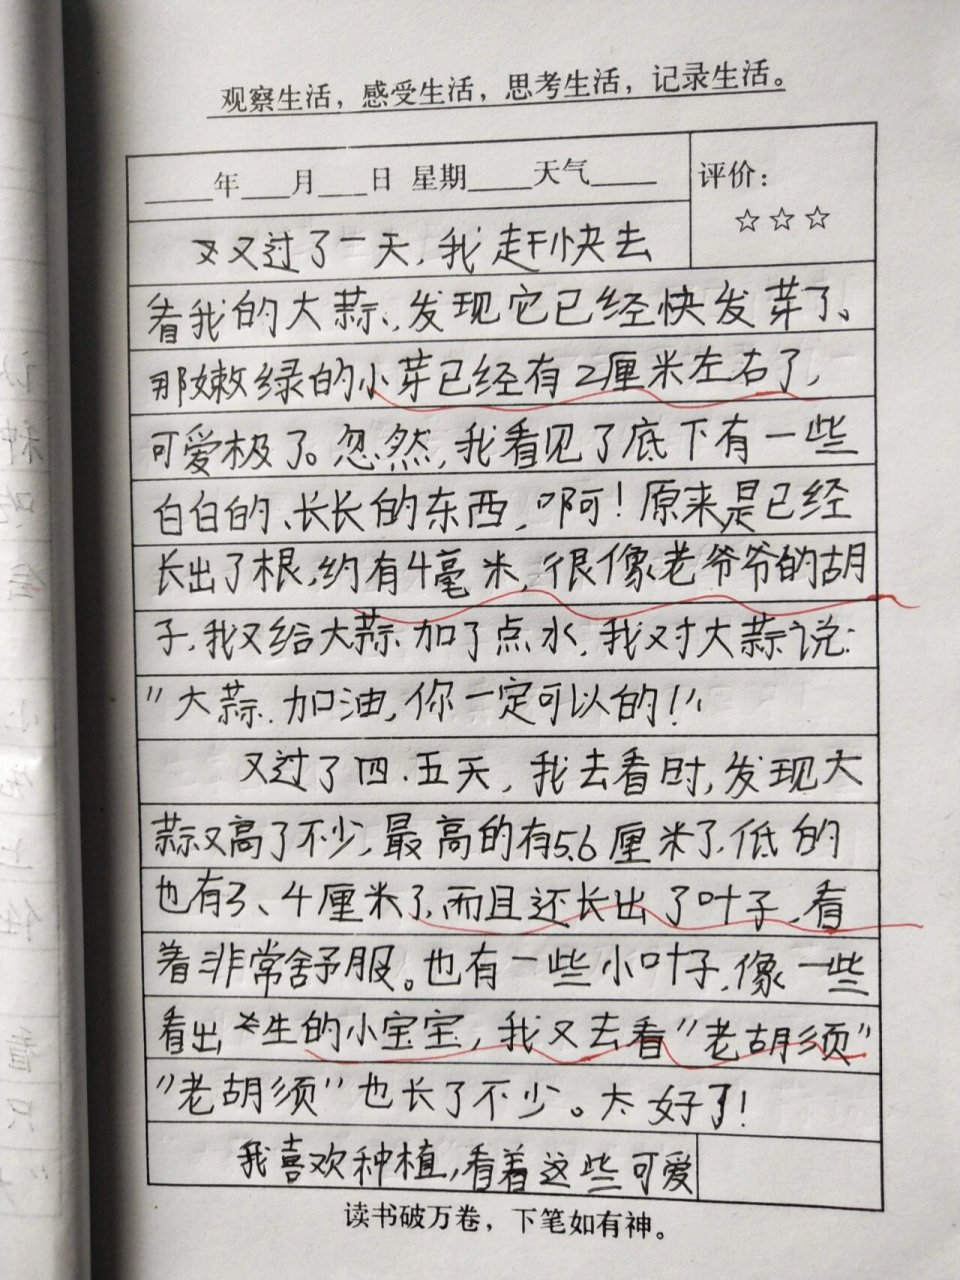 观察生活，感受生活，思考生活，记录生活。
____年___月___日 星期____天气____
评价：
☆☆☆
又过了一天，我赶快去
看我的大蒜，发现它已经快发芽了。
那嫩绿的小芽已经有2厘米左右了，
可爱极了。忽然，我看见了底下有一些
白白的、长长的东西，啊！原来是已经
长出了根，约有4毫米，很像老爷爷的胡
子，我又给大蒜加了点水，我对大蒜说：
"大蒜，加油，你一定可以的！"
又过了四、五天，我去看时，发现大
蒜又高了不少，最高的有5.6厘米了，低的
也有3、4厘米了，而且还长出了叶子，看
着非常舒服。也有一些小叶子，像一些
看出生的小宝宝，我又去看"老胡须"
"老胡须"也长了不少。太好了！
我喜欢种植，看着这些可爱
读书破万卷，下笔如有神。